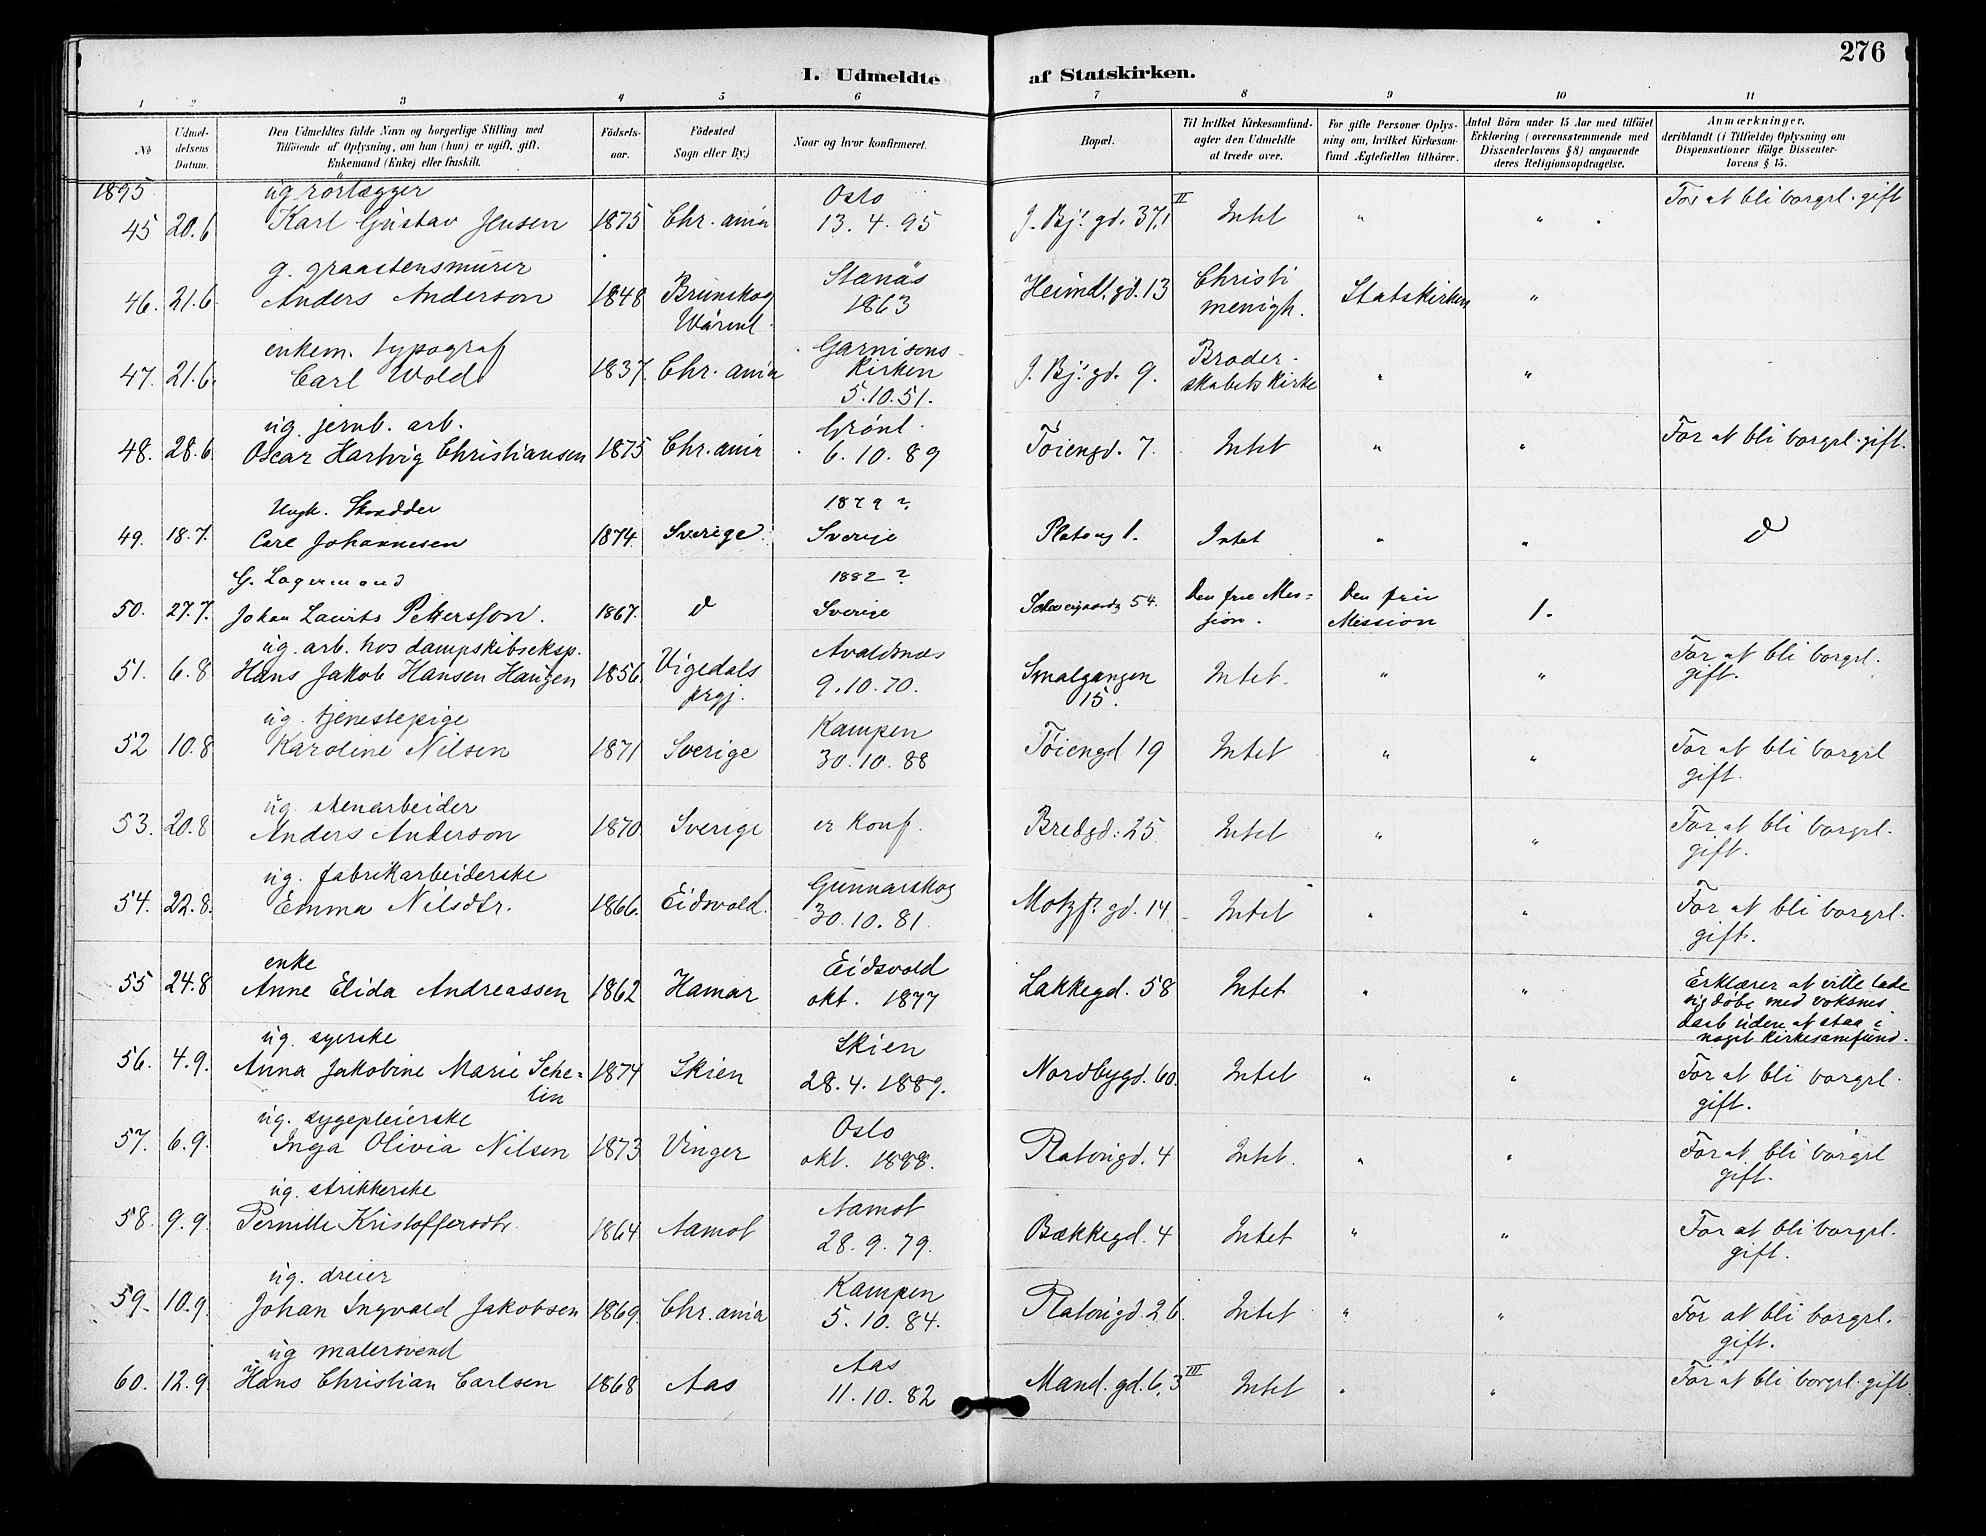 276
I. Udmeldte af Statskirken.
1 2 3 4 5 6 7 8 9 10 11
No
Udmeldelsens Datum.
Den Udmeldtes fulde Navn og borgerlige Stilling med
Tilføiende af Oplysning, om han (hun) er ugift, gift,
Enkemand (Enke) eller fraskilt.
Fødselsaar.
Fødested
Sogn eller By.)
Naar og hvor konfirmeret.
Bopæl.
Til hvilket Kirkesamfund-
agter den Udmeldte
at træde over.
For gifte Personer Oplys-
ning om, hvilket Kirkesam-
fund Ægtefællen tilhører.
Antal Børn under 15 Aar med tilføiet
Erklæring (overensstemmende med
Dissenterlovens § 8) angaaende
deres Religionsopdragelse.
Anmærkninger,
deriblandt (i Tilfælde) Oplysning om
Dispensationer ifølge Dissenter-
lovens § 15.
1895
ug rørlægger Oslo II For at bli borgrl. gift
45 20.6 Karl Gustav Jensen 1875 Chr.ania 13.4.95 J. Bj. gd. 37, Intet " "
g. graastensmurer Stenäs Christi
46. 21.6. Anders Anderson 1848 Brunskog 1863 Heimd. gd. 13 menigh. Statskirken "
Wärml.
enkem. typograf Garnisons- Broder-
47. 21.6. Carl Wold 1837. Chr.ania kirken J. Bj. gd. 9. skabets kirke " "
5.10.51.
ug. jernb. arb. Grønl.
48. 28.6. Oscar Hartvig Christiansen 1875 Chr.ania 6.10.89 Tøiengd. 7. Intet " " For at bli borgrl. gift.
Ungk. Skrædder 1879?
49. 18.7. Carl Johannesen 1874. Sverige. Sverige Platous 1. Intet " "
G. Lagermand 1882? Den frie Mis= Den frie
50. 27.7. Johan Laurits Pettersson. 1867. Sverige 54. sion. Mission 1.
ug. arb. hos dampskibseksp. Avaldsnæs For at bli borgrl.
51. 6.8 Hans Jakob Hansen Haugen 1856. Vigedals 9.10.70. Smalgangen Intet. " " gift.
prgj. 15.
ug. tjenestepige Kampen
52 10.8 Karoline Nilsen 1871 Sverige 30.10.88 Tøiengd 19 Intet " " For at bli borgrl
gift.
ug. stenarbeider
53. 20.8 Anders Anderson 1870 Sverige er konf. Bredgd. 25 Intet " " For at bli borgrl.
gift.
ug. fabrikarbeiderske Gunnarskog
54. 22.8. Emma Nilsdtr. 1866. Eidsvold. 30.10.81. Motzf. gd. 14 Intet " " For at bli borgrl.
gift.
enke Eidsvold
55 24.8 Anne Elida Andreassen 1862 Hamar okt. 1877 Lakkegd. 58 Intet " " Erklærer at ville lade
sig døbe med voksnes
daab uden at staa i
noget kirkesamfund.
ug. syerske Skien
56. 4.9. Anna Jakobine Marie Sche= 1874 Skien 28.4.1889. Nordbygd. 60. Intet " " For at bli borgrl.
lin gift.
ug. sygepleierske Oslo
57. 6.9. Inga Olivia Nilsen 1873 Vinger okt. 1888. Platougd. 4 Intet. " " For at bli borgrl
gift.
ug. strikkerske Aamot
58. 9.9. Pernille Kristoffersdtr. 1864 Aamot 28.9.79. Bækkegd. 4 Intet " " For at bli borgrl.
gift.
ug. dreier Kampen
59. 10.9. Johan Ingvald Jakobsen 1869. Chr.ania 5.10.84. Platougd. 26. Intet " " For at bli borgrl.
gift.
ug malersvend Aas III
60. 12.9. Hans Christian Carlsen 1868 Aas 11.10.82 Mand. gd. 6, 3 Intet " " For at bli borgrl. gift